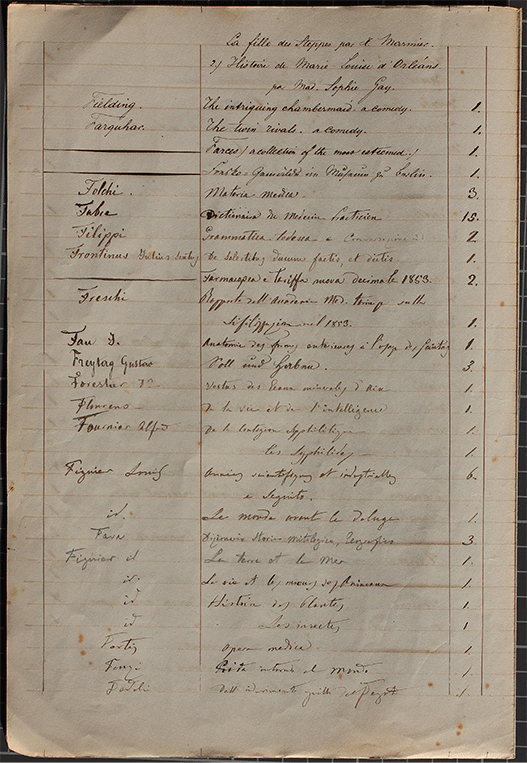 La fille des Steppes par X. Marmier.
2) Histoire de Marie Louise d'Orléans
par Mad. Sophie Gay.
Fielding. The intriguing chambermaid a comedy. 1.
Farquhar. The twin rivals. a comedy. 1.
Farces / a collection of the most esteemed / 1.
Gaewölbe im Museum zu Berlin. 1.
Folchi. Materia medica 3.
Fabre Dictionaire de Médecin Praticien 15.
Filippi Grammatica tedesca e 2.
Frontinus Julius De selectis ducum factis, et dictis. 1.
Farmacopea e tariffa nuova decimale 1853. 2.
Freschi Rapporto dell' Accademia Md. sulla
Sifilizzazion nel 1853. 1.
Fau J. Anatomie des formes extérieures à l'usage des peintres 1.
Freytag Gustav Soll und Haben. 3.
Forestier Vertus des Eaux minerales d'Aix 1.
Flourens De la vie et de l'intelligence 1.
Fournier Alfred De la Contagion Syphilitique 1.
les Syphilides 1.
Figuier Louis Annuaires scientifiques et industrielles 6.
e seguito.
id. Le monde avant le deluge 1.
Fava Dizionario Storico Mitologico, Geografico 3.
Figuier id La terre et le Mer 1.
id. La vie et les moeurs des Animaux 1.
id Histoire des Plantes 1.
id Les insectes 1.
Opera medica 1.
1.
1.